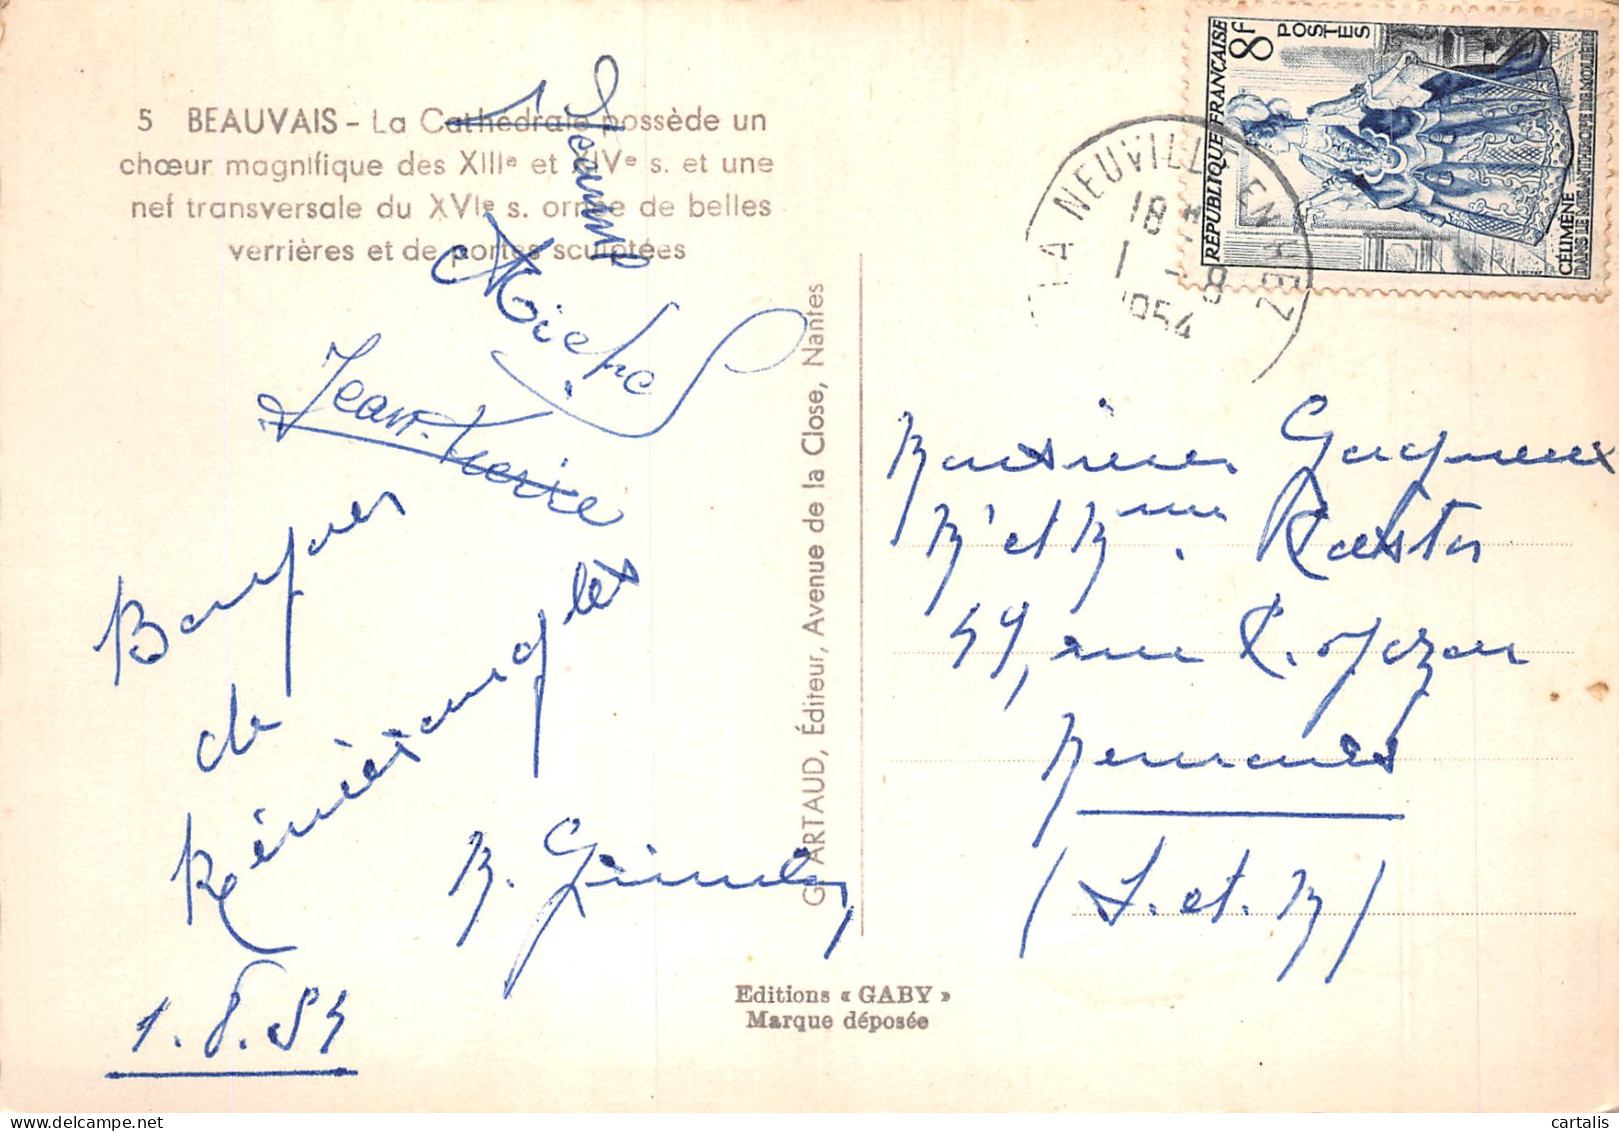 5 BEAUVAIS - La Cathédrale possède un
chœur magnifique des XIIIe et XIVe s. et une
nef transversale du XVIe s. ornée de belles
verrières et de portes sculptées
Jeanne
Michel
Jean-Marie
de
1.8.54
GARTAUD, Éditeur, Avenue de la Close, Nantes
Editions « GABY »
Marque déposée
RÉPUBLIQUE FRANÇAISE
8F
POSTES
CÉLIMÈNE
DANS LE MISANTHROPE DE MOLIÈRE
LA NEUVILLE EN HEZ
18
1 - 8
1954
Monsieur
M et Mme
59, rue
Nemours
(S. et. M)
cartalis